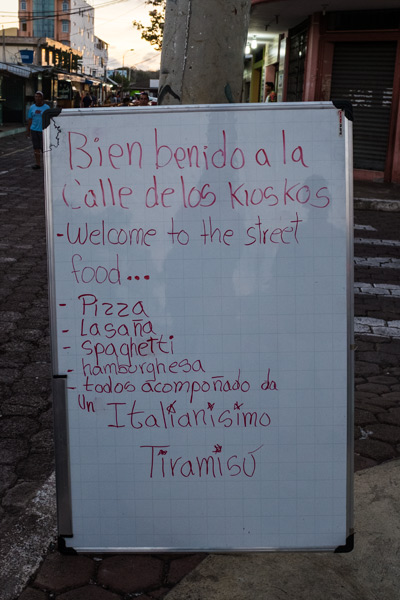 Bienbenido a la
Calle de los Kioskos
-Welcome to the street
food...
- Pizza
- Lasaña
- spaghetti
- hamburghesa
- todos acompoñado da
un Italianisimo
Tiramisú